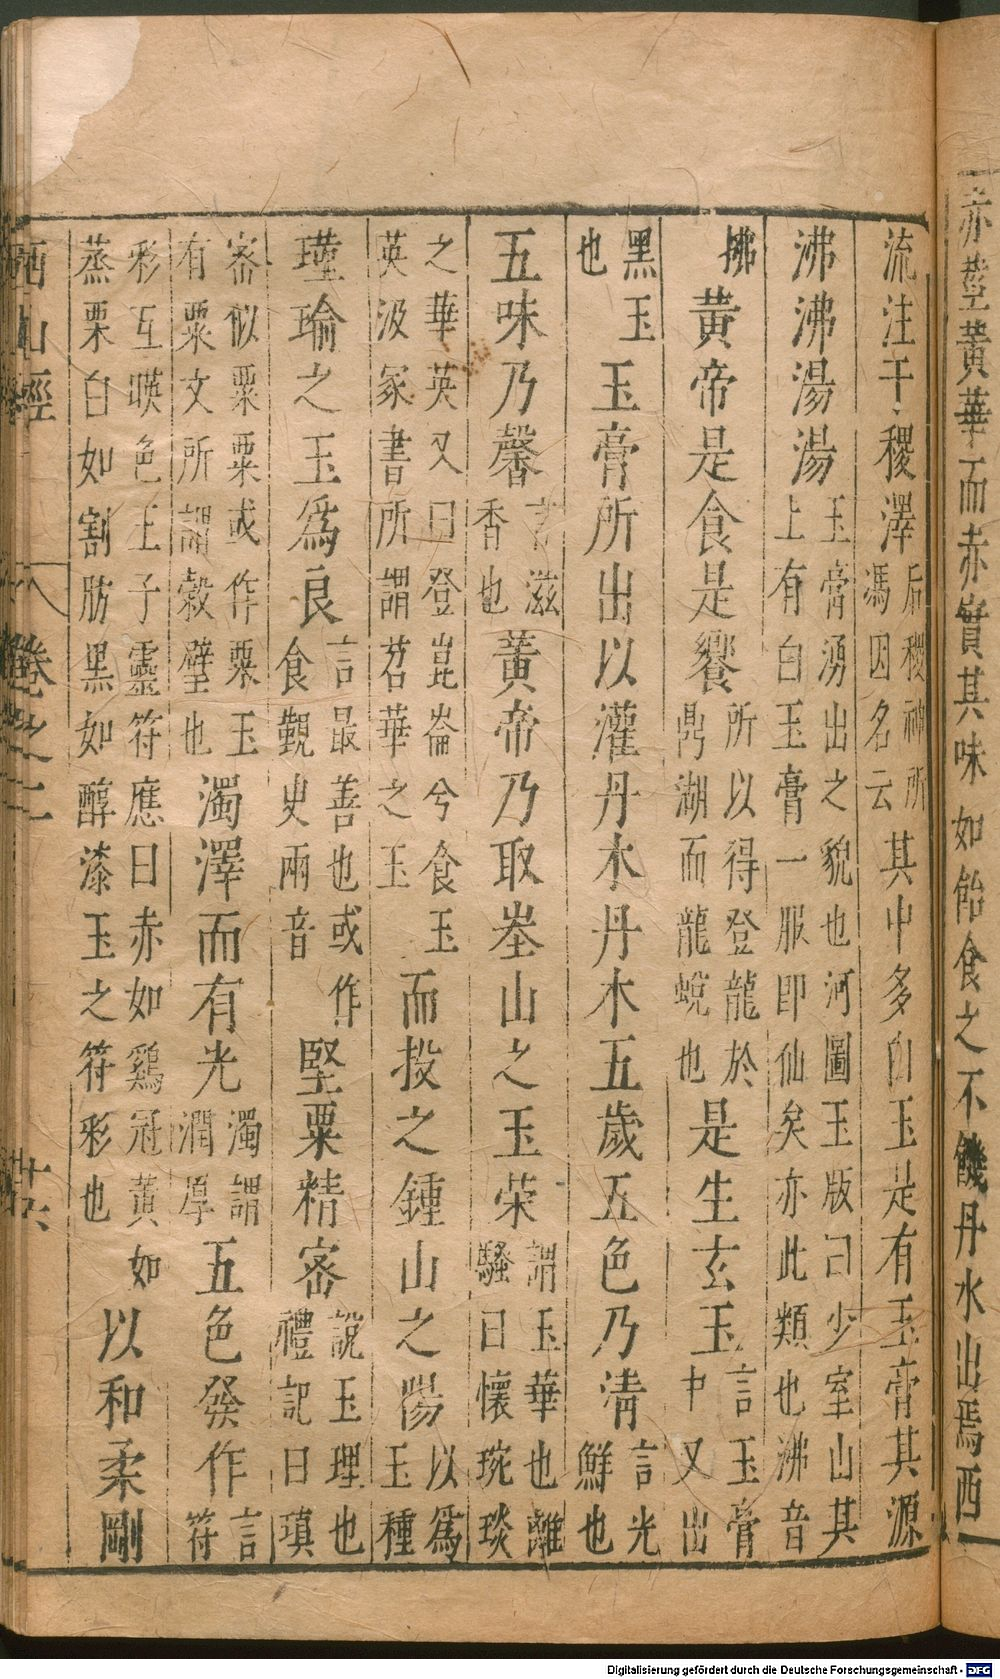 赤莖黃華而赤實其味如飴食之不饑丹水出焉西
流注于稷澤后稷神所馮因名云其中多白玉是有玉膏其源
沸沸湯湯玉膏湧出之貌也河圖玉版曰少室山其上有白玉膏一服即仙矣亦此類也沸音
拂黃帝是食是饗所以得登龍於鼎湖而龍蛻也是生玄玉言玉膏中又出
黑玉也玉膏所出以灌丹木丹木五歲五色乃清言光鮮也
五味乃馨言滋香也黃帝乃取峚山之玉榮謂玉華也離騷曰懷琬琰
之華英又曰登崑崙兮食玉英汲冢書所謂苕華之玉而投之鍾山之陽以爲玉種
瑾瑜之玉爲良言最善也或作食覲史兩音堅粟精密說玉理也禮記曰瑱
密似粟粟或作粟玉有粟文所謂穀璧也濁澤而有光濁謂潤厚五色發作言符
彩互暎色王子靈符應曰赤如鷄冠黃如蒸栗白如割肪黑如醇漆玉之符彩也以和柔剛
西山經 卷之二 廿六
Digitalisierung gefördert durch die Deutsche Forschungsgemeinschaft - DFG